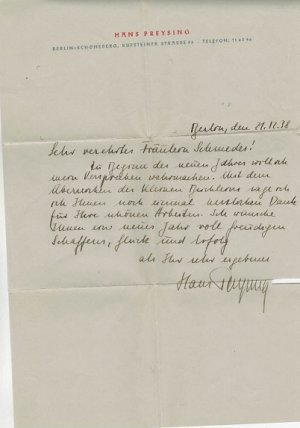 HANS PREYSING
BERLIN-SCHÖNEBERG, KUFSTEINER STRASSE
TELEFON: 71 62 96
Berlin, den 29.12.38
Sehr verehrtes Fräulein Schmedes!
Zu Beginn des neuen Jahres will ich
mein Versprechen wahrmachen. Mit dem
Übersenden des kleinen Büchleins sage ich
Ihnen noch einmal herzlichen Dank
für Ihre schönen Arbeiten. Ich wünsche
Ihnen ein neues Jahr voll freudigen
Schaffens, Glück und Erfolg
als Ihr sehr ergebener
Hans Preysing